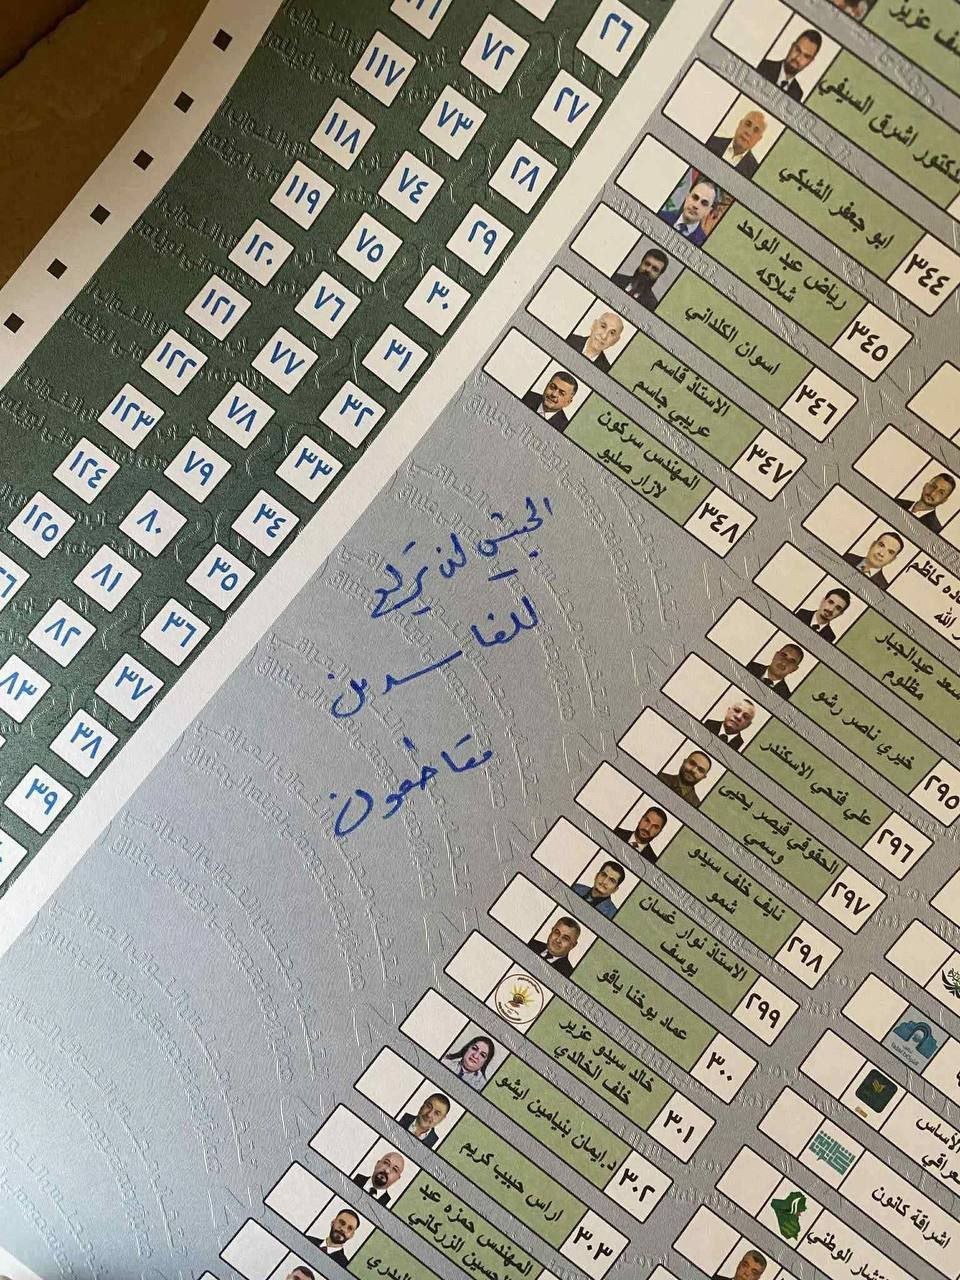 ٢٦
٢٧
٢٨
٢٩
٣٠
٣١
٣٢
٣٣
٣٤
٣٥
٣٦
٣٧
٣٨
٣٩
٧٢
٧٣
٧٤
٧٥
٧٦
٧٧
٧٨
٧٩
٨٠
٨١
٨٢
٨٣
١١٧
١١٨
١١٩
١٢٠
١٢١
١٢٢
١٢٣
١٢٤
١٢٥
عزيز
اشرق السيفي
٣٤٤ ابو جعفر الشبكي
٣٤٥ رياض عبد الواحد
شلاكه
٣٤٦ اسوان الكلداني
٣٤٧ الاستاذ قاسم
عريبي جاسم
٣٤٨ المهندس سركون
لازار صليو
الجيش لن يركع
للفاسدين
مقاطعون
كاظم
الله
سعد عبدالجبار
مظلوم
٢٩٥ خيري ناصر رشو
٢٩٦ علي فتحي الاسكندر
٢٩٧ الحقوقي قيصر يحيى
وسمي
٢٩٨ نايف خلف سيدو
شمو
٢٩٩ الاستاذ نوار غسان
يوسف
٣٠٠ عماد يوخنا ياقو
٣٠١ خالد سيدو عزير
خلف الخالدي
٣٠٢ د.ايمان بنيامين ايشو
٣٠٣ اراس حبيب كريم
المهندس حمزه عبد
الحسين الزركاني
البدري
الأساس
اشراقة كانون
الوطني